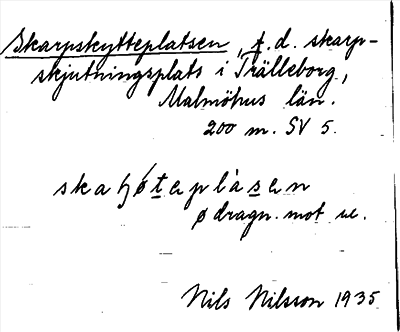 Skarpskytteplatsen, f.d. skarp-
skjutningsplats i Trälleborg,
Malmöhus län.
200 m. SV 5.
skaʃøteplåsen
ø dragn. mot
Nils Nilsson 1935